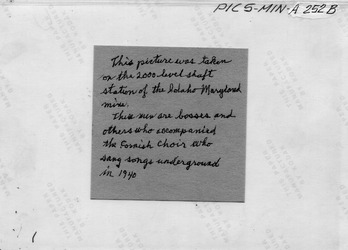 PICS-MIN-A 252B
This picture was taken
on the 2000 level shaft
station of the Idaho Maryland
mine.
These men are bosses and
others who accompanied
the Cornish Choir who
sang songs underground
in 1940